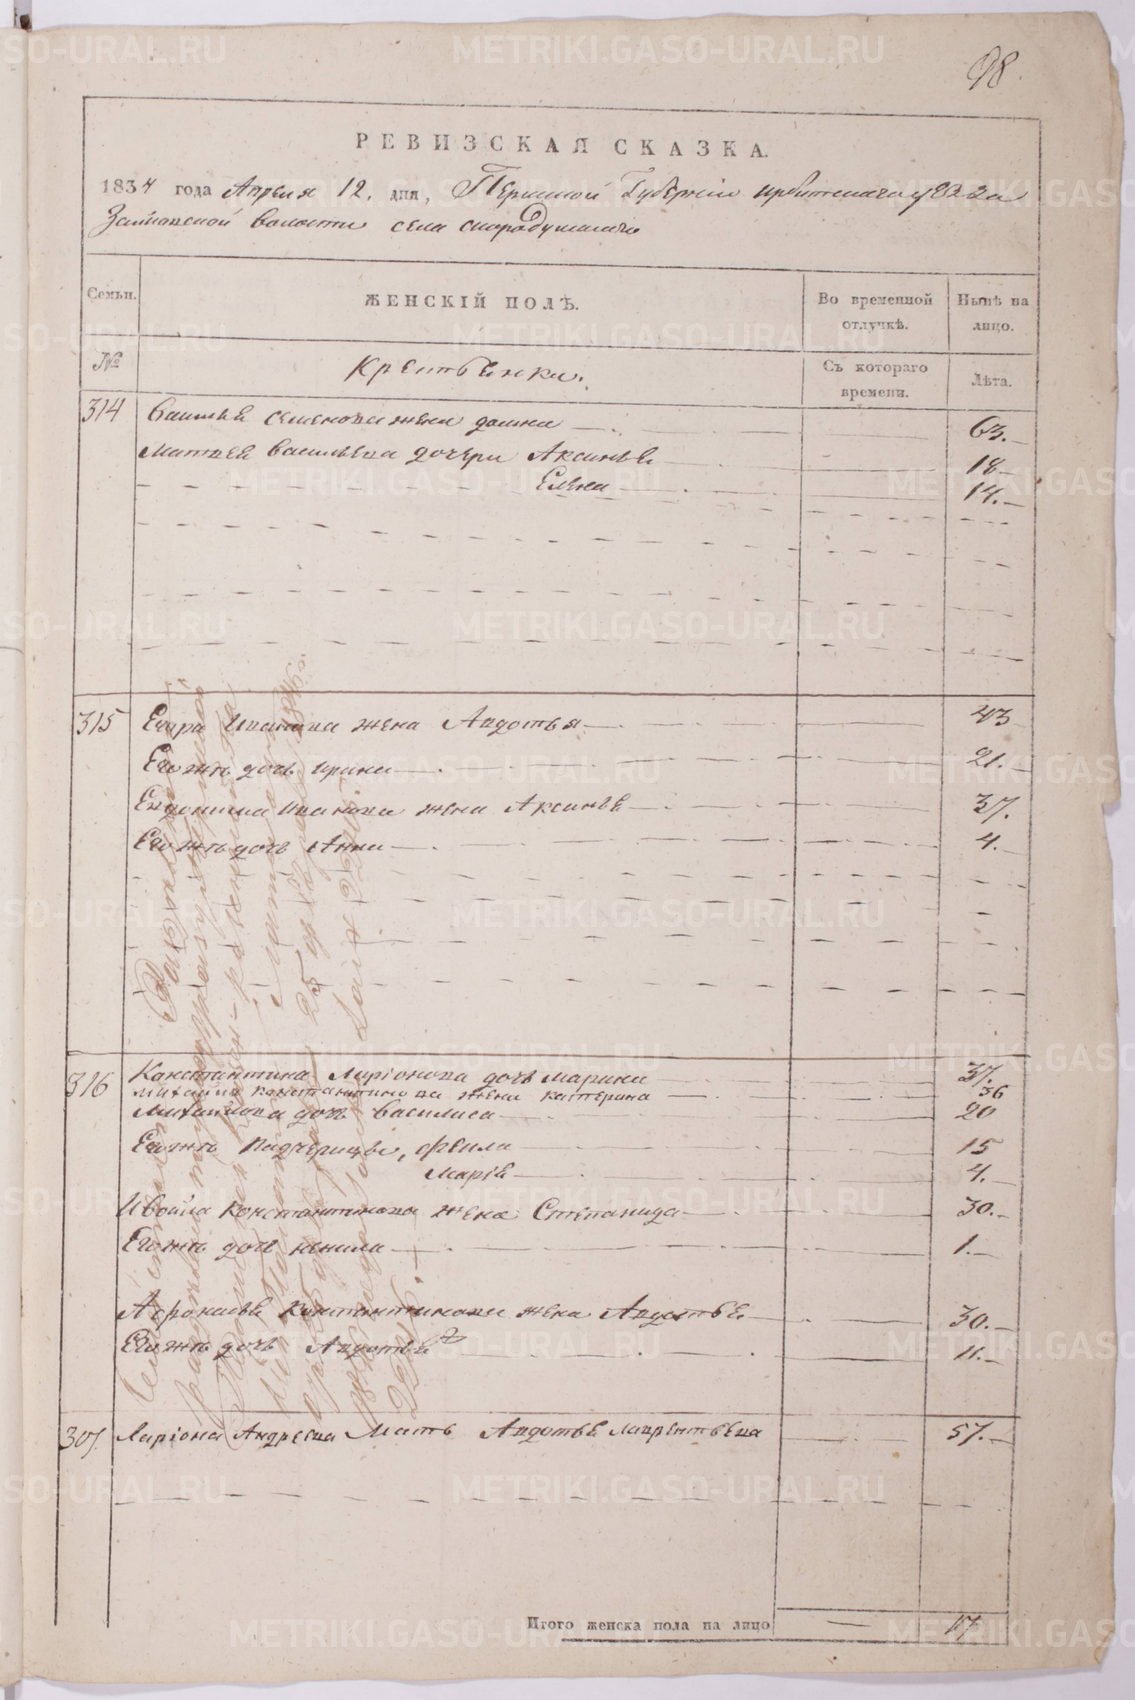 98
РЕВИЗСКАЯ СКАЗКА.
1834 года Апреля 12. дня, Пермской Губернїи ирбитскаго уезда
Зайковской волости села скородумскаго
Семьи. ЖЕНСКІЙ ПОЛЪ. Во временной отлучкѣ. Нынѣ на лицо.
№ Крестьенки. Съ котораго времени. Лѣта.
314 Василья семенова жена домна 63.
Матвея васильева дочери Аксинья 18
Елена 14.
315 Егора Иванова жена Авдотья 43
Егожъ дочь ирина 21.
Евдокима иванова жена Аксинья 37.
Егожъ дочь Анна 4.
316 Константина Ларіонова дочь марина 37.
михайла константинова жена катерина 36
Михайлова дочь василиса 20
Егожъ падчерицы, фекла 15
Марія 4.
Ивойла Константинова жена Степанида 30.
Егожъ дочь ненила 1.
Афонасья Константинова жена Авдотья 30.
Егожъ дочь Авдотья 11.
307. Ларіона Андреева Мать Авдотья лаврентьева 57.
Итого женска пола на лицо 17.
METRIKI.GASO-URAL.RU